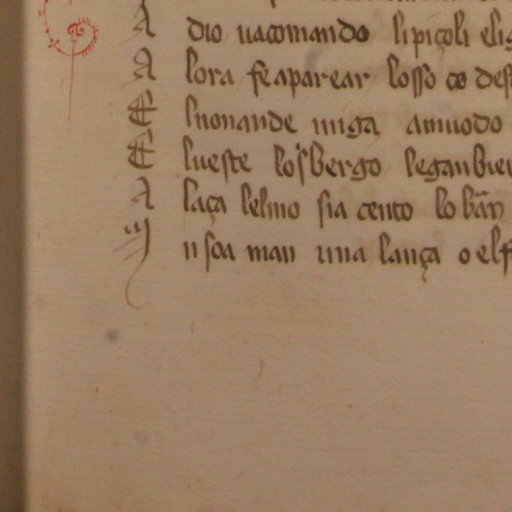 A dio uacomando lipiçoli elig
A lora fe aparear losso co dest
E luonande uuga amuodo
E lueste losbergo leganbier
A laça lelmo sia cento lo bãn
I n soa man una lança o elf